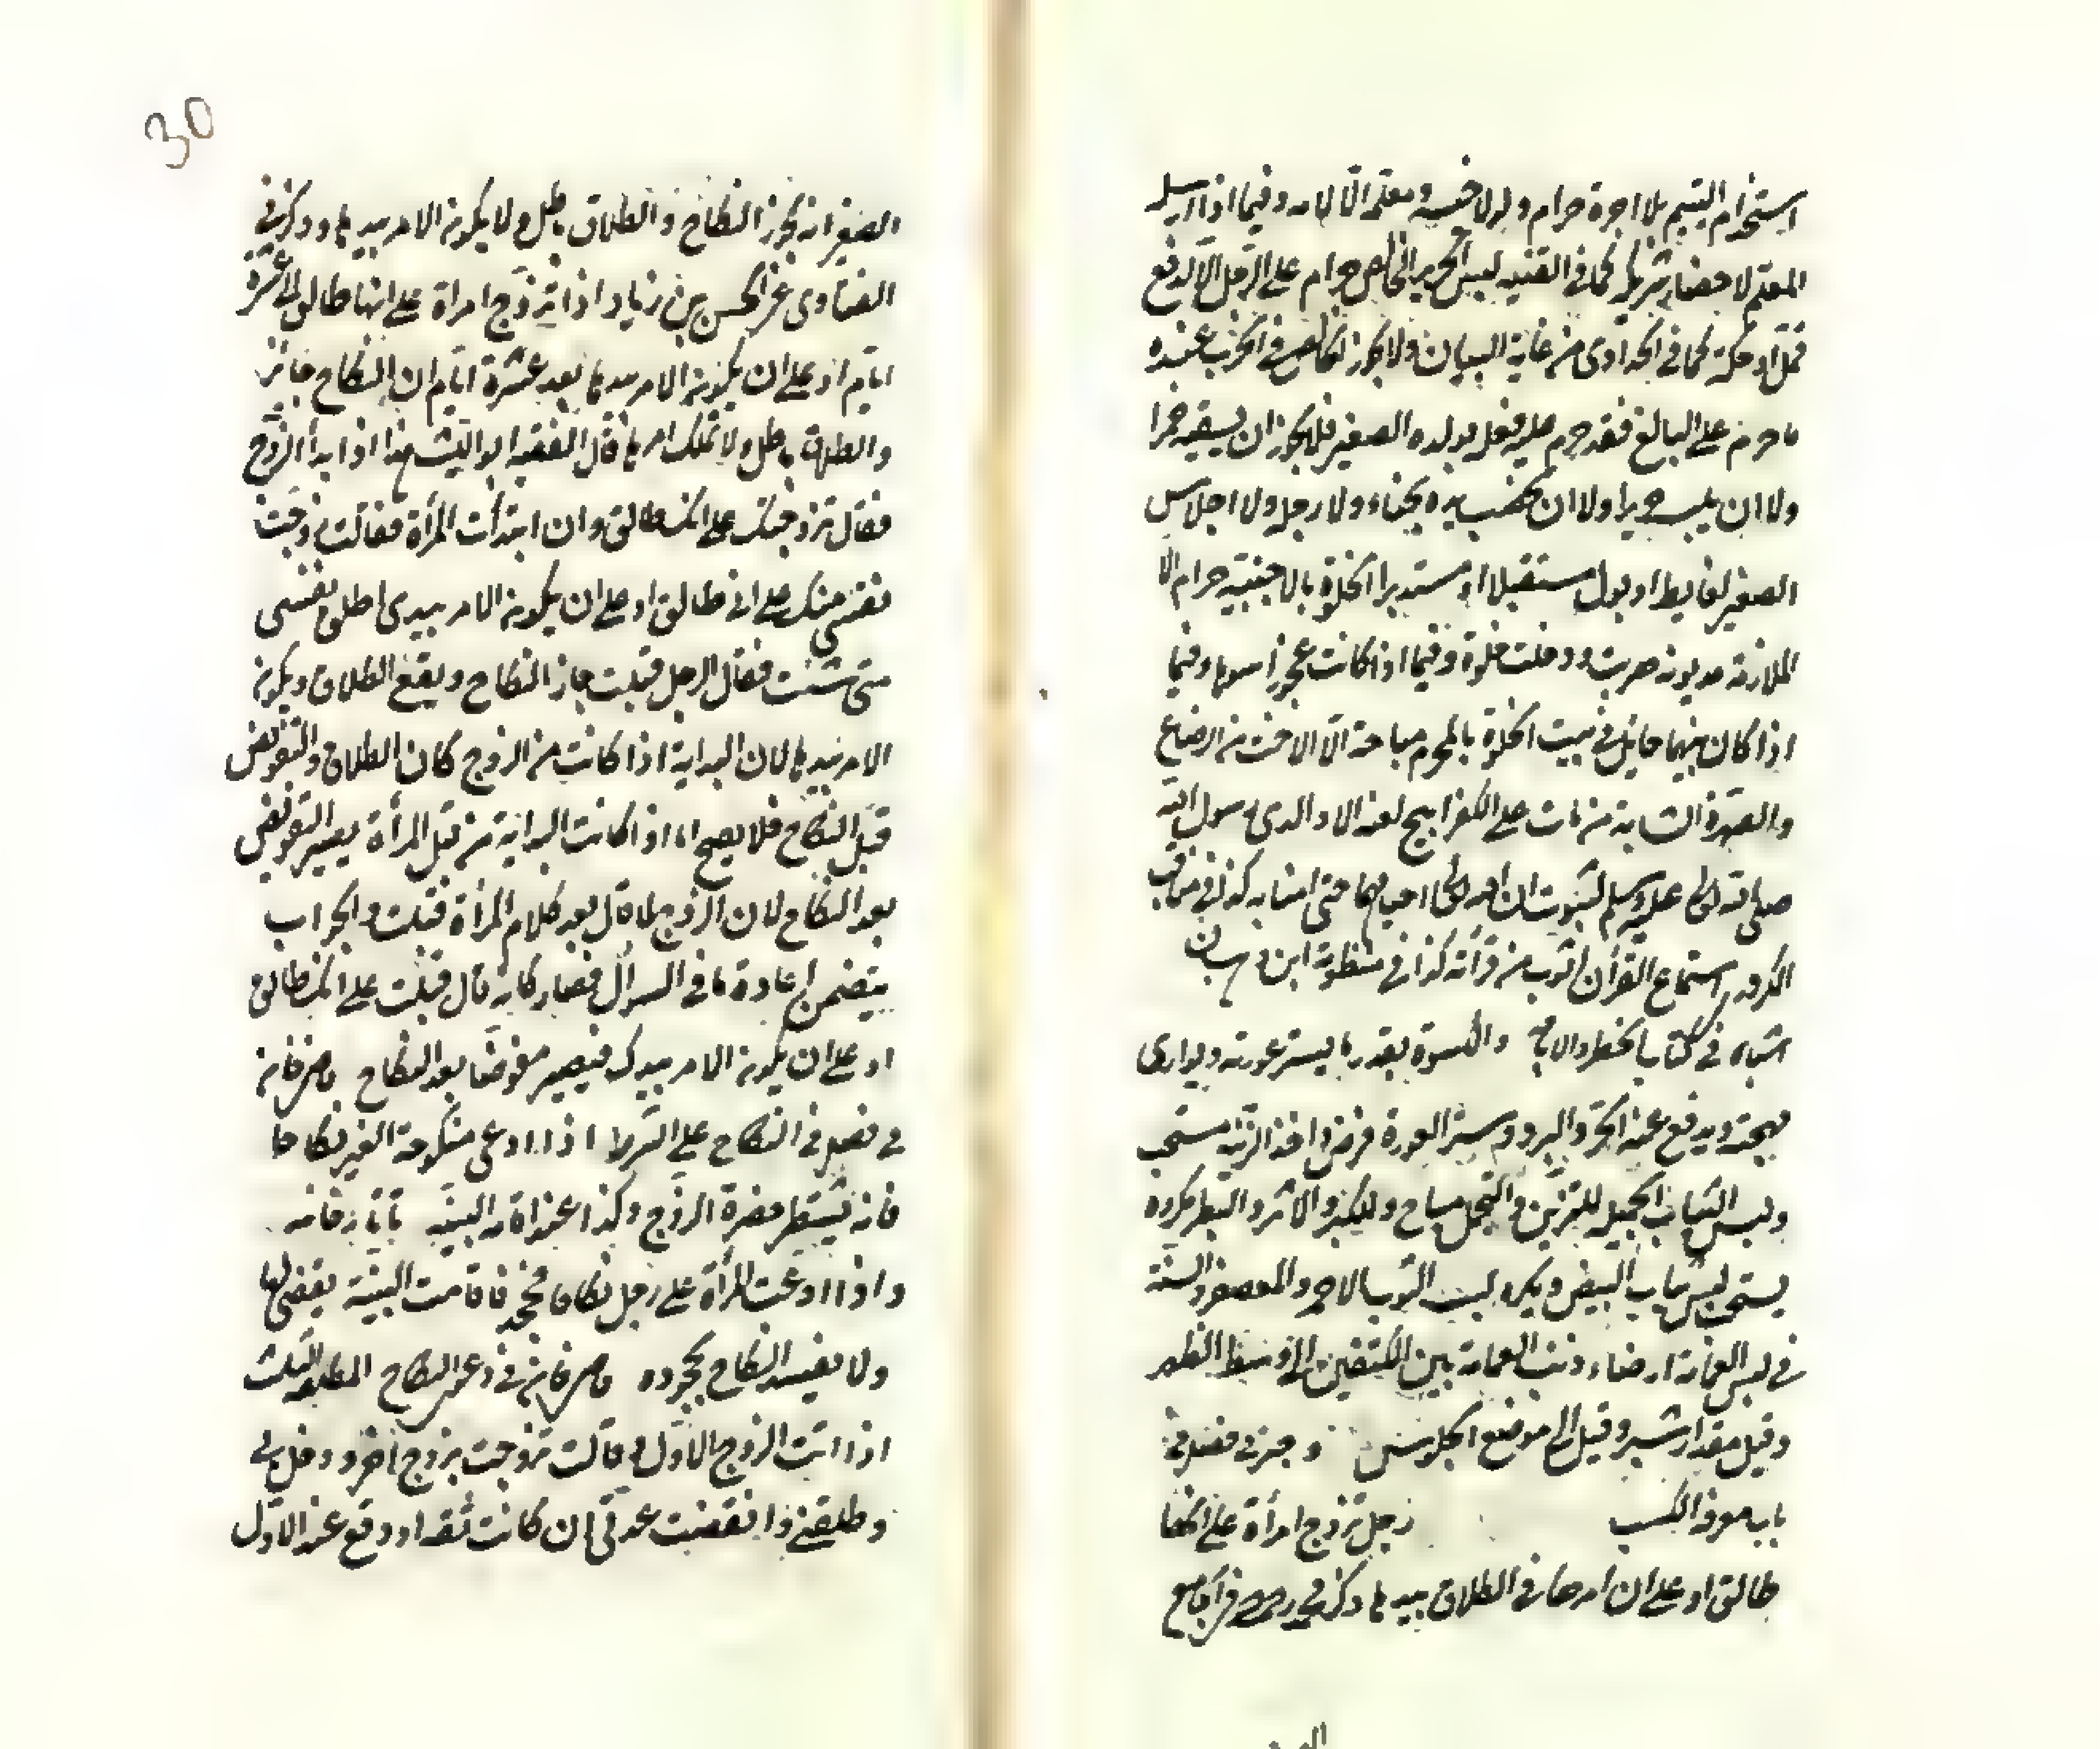 استخدام اليتيم بلا اجرة حرام ولو لاخيه ومعلمه الّا لامه وفيما اذا ارسله
المعلم لاحضار شريكه كما في القنيه لبس الحرير الخالص حرام على الرجل الا لدفع
قمل او حكة كما في الحدادى من غاية البيان ولا يجوز الخالص في الحرب عنده
ما حرم على البالغ فقد حرم عليه فعله بولده الصغير فلا يجوز ان يسقيه خمرا
ولا ان يلبسه حريرا ولا ان يخضب يده بحناء ولا رجله ولا اجلاس
الصغير لغايط او بول مستقبلا او مستدبرا الخلوة بالاجنبية حرام الا
لملازمة مديونه هربت ودخلت خلوة وفيما اذا كانت عجوزا سوها وفيما
اذا كان بينهما حايل في بيت الخلوة بالمحرم مباحة الّا الاخت من الرضاع
والصهرة الشابه من مات على الكفر ابيح لعنه الا والدى رسول الله
صلى الله تعالى عليه وسلم لثبوت ان الله تعالى احياهما حتى امنا به كذا في مناقب
الكردرى استماع القرأن اثوب من قرأته كذا في منظومة ابن وهبان
اشباه في كتاب الحظر والاباحة والكسوة بقدر ما يستر عورته ويوارى
مهجته ويدفع عنه الحرّ والبرد وستر العورة فرض واخذ الزينة مستحب
ولبس الثياب الجميل للتزيّن والتجمل مباح وللكبر والاشر والبطر مكروه
يستحب لبس ثياب البيض ويكره لبس الثوب الاحمر والمعصفر والسنة
في لبس العمامة ارخاء ذنب العمامة بين الكتفين الى وسط الظهر
وقيل مقدار شبر وقيل الى موضع الجلوس وجيز في فصل في
باب الكسب رجل تزوج امرأة على انها
طالق او على ان امرها في الطلاق بيدها ذكر محمد رحمه في الجامع
الصغير انه يجوز النكاح والطلاق باطل ولا يكون الامر بيدها وذكر في
الفتاوى عن الحسن بن زياد اذا تزوج امراة على انها طالق الى عشرة
ايّام او على ان يكون الامر بيدها بعد عشرة ايّام ان النكاح جائز
والطلاق باطل ولا تملك امرها قال الفقيه ابو الليث هذا اذا بدأ الزوج
فقال تزوجتك على انك طالق وان ابتدأت المرأة فقالت زوجت
نفسى منك على انى طالق او على ان يكون الامر بيدى اطلق نفسى
متى شئت فقال الرجل قبلت جاز النكاح ويقع الطلاق ويكون
الامر بيدها لان البداية اذا كانت من الزوج كان الطلاق والتفويض
قبل النكاح فلا يصح اما اذا كانت البداية من قبل المرأة يصير التفويض
بعد النكاح لان الزوج لما قال بعد كلام المرأة قبلت والجواب
يتضمن اعادة ما في السوأل فصار كانه قال قبلت على انك طالق
او على ان يكون الامر بيدك فيصير مفوضا بعد النكاح قاضيخان
في فصل في النكاح على الشرط اذا ادعى منكوحة الغير نكاحا
فانه يشترط حضرة الزوج وكذا عند اقامة البينه تاتارخانيه
واذا ادعت المرأة على رجل نكاحا فجحد فاقامت البينة يقضى لها
ولا يفسد النكاح بجحوده قاضيخان في دعوى النكاح المطلقة الثلث
اذا اتت الزوج الاوّل وقالت تزوجت بزوج اخر ودخل بى
وطلقنى وانقضت عدتى ان كانت ثقة او وقع عند الاوّل
30